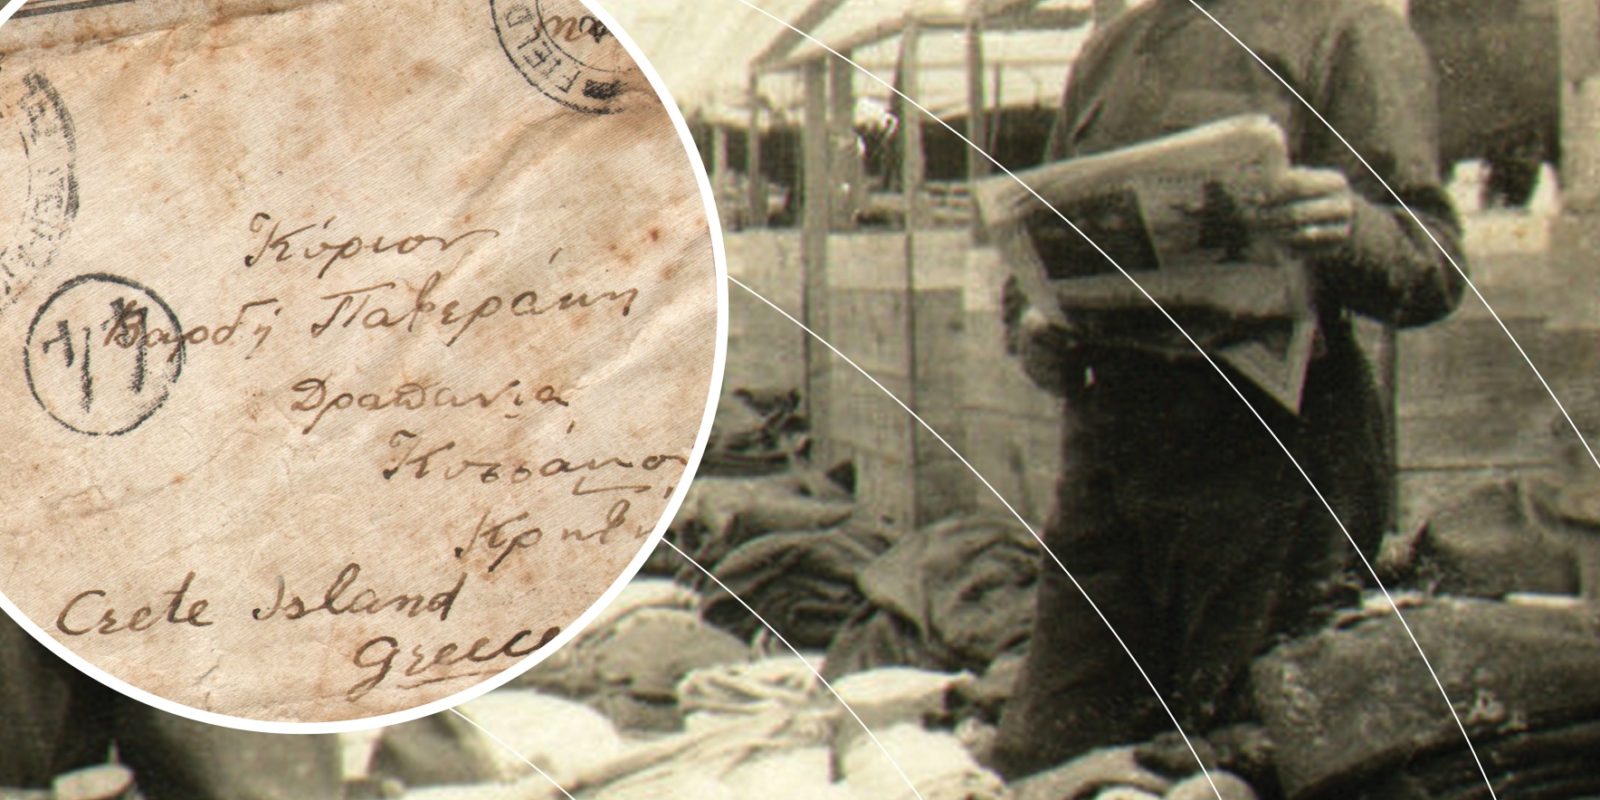 FIELD
Κύριον
Βαρδή Παβεράκη
Δραπανιά
Κισσάμου
Κρήτη
Crete Island
Greece